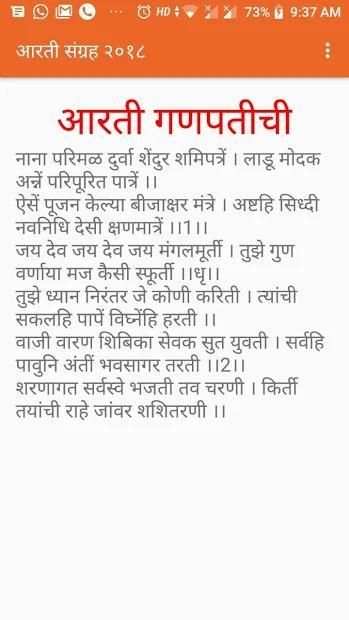 HD 73% 9:37 AM
आरती संग्रह २०१८
आरती गणपतीची
नाना परिमळ दुर्वा शेंदुर शमिपत्रें । लाडू मोदक
अन्नें परिपूरित पात्रें ।।
ऐसें पूजन केल्या बीजाक्षर मंत्रे । अष्टहि सिध्दी
नवनिधि देसी क्षणमात्रें ।।1।।
जय देव जय देव जय मंगलमूर्ती । तुझे गुण
वर्णाया मज कैसी स्फूर्ती ।।धृ।।
तुझे ध्यान निरंतर जे कोणी करिती । त्यांची
सकलहि पापें विघ्नेंहि हरती ।।
वाजी वारण शिबिका सेवक सुत युवती । सर्वहि
पावुनि अंतीं भवसागर तरती ।।2।।
शरणागत सर्वस्वे भजती तव चरणी । किर्ती
तयांची राहे जांवर शशितरणी ।।